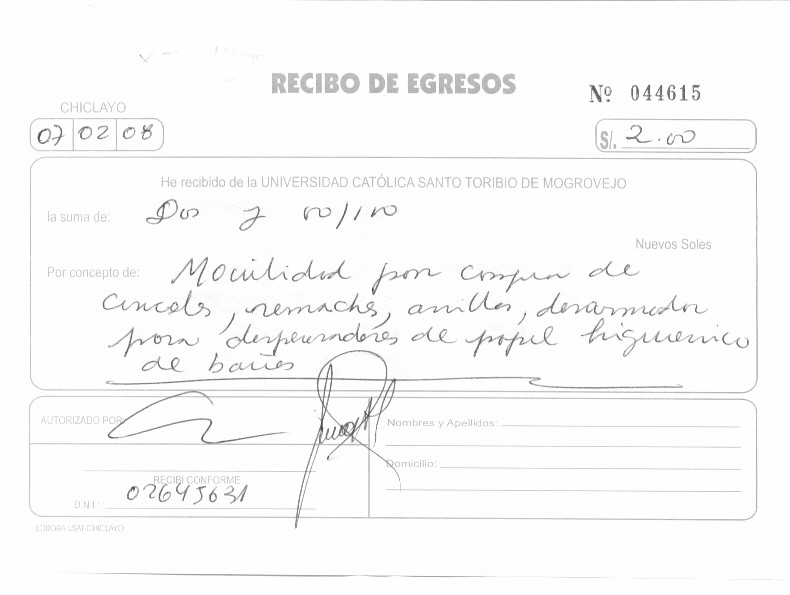 RECIBO DE EGRESOS
Nº 044615
CHICLAYO
07 02 08
S/. 2.00
He recibido de la UNIVERSIDAD CATÓLICA SANTO TORIBIO DE MOGROVEJO
la suma de: Dos y 00/100
Nuevos Soles
Por concepto de: Movilidad por compra de
cinceles, remaches, anillos, desarmador
para dispensadores de papel higuienico
de baños
AUTORIZADO POR
Nombres y Apellidos:
Domicilio:
RECIBI CONFORME
D.N.I.: 02645631
EDITORA USAT-CHICLAYO